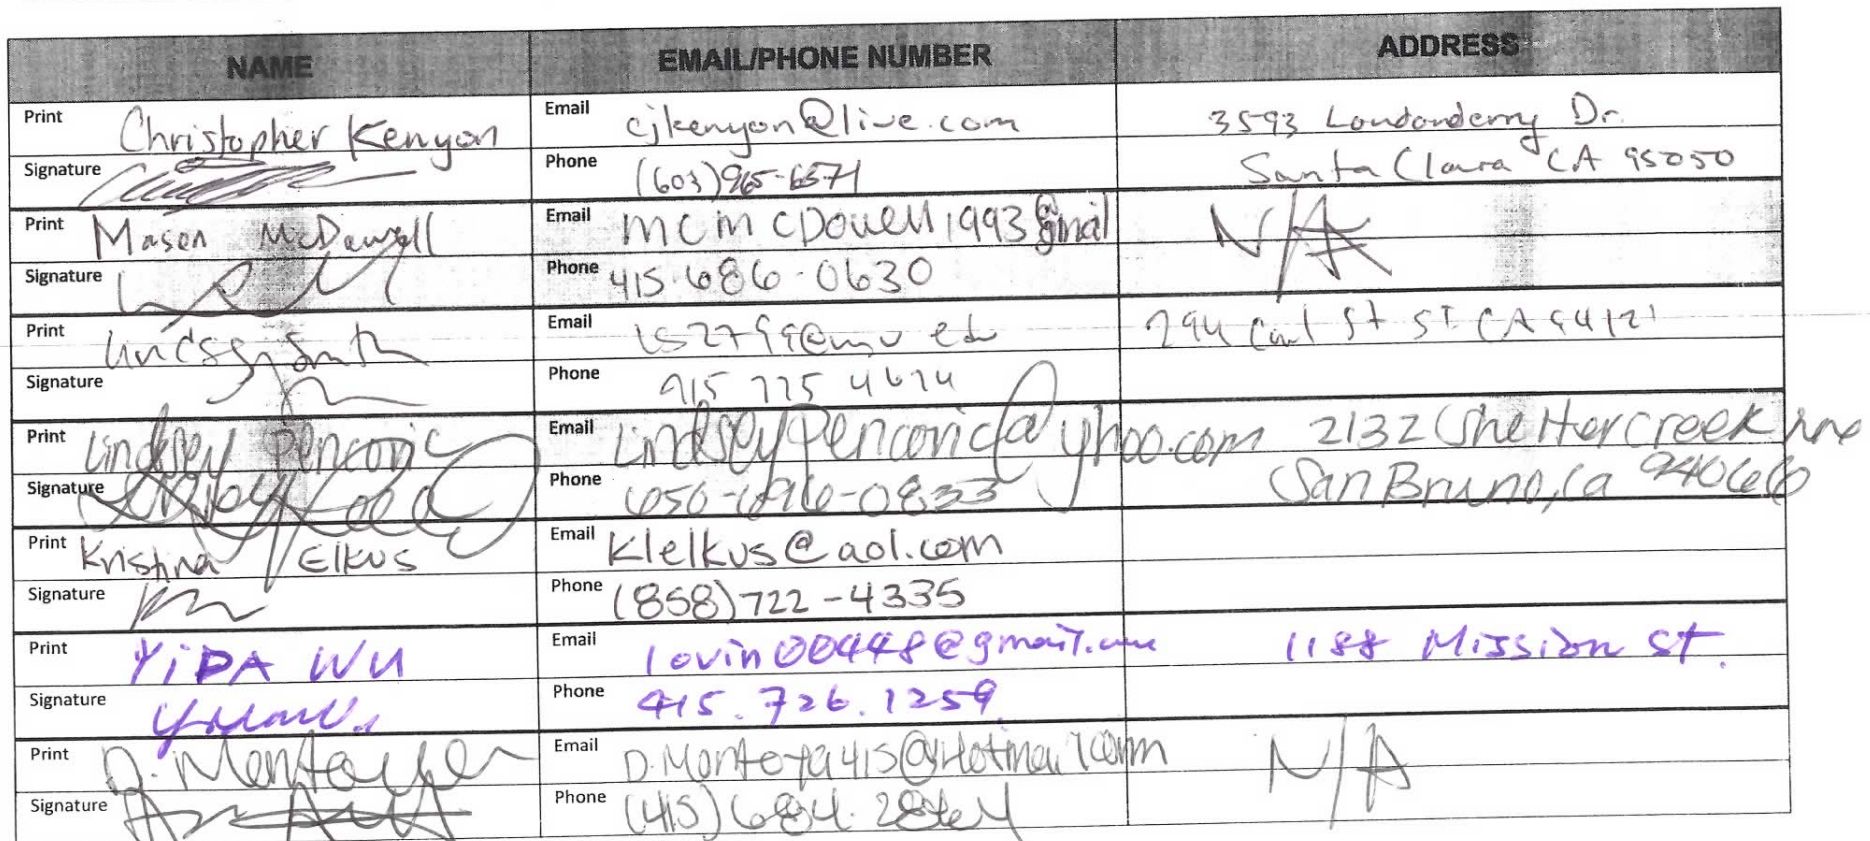 NAME EMAIL/PHONE NUMBER ADDRESS
Print Christopher Kenyon Email cjkenyon@live.com 3593 Londonderry Dr.
Signature Phone (603)965-6571 Santa Clara CA 95050
Print Mason McDowell Email mcmcDowell1993@gmail N/A
Signature Phone 415.686.0630
Print Email CA 94121
Signature Phone
Print Lindsey Pencovic Email LindseyPencovic@yhoo.com 2132 Sheltercreek lane
Signature Phone 650-696-0833 San Bruno, Ca 94066
Print Kristina Elkus Email Klelkus@aol.com
Signature Phone (858)722-4335
Print YiDA WU Email lovin00448@gmail.com 1188 Mission St.
Signature Phone 415.726.1259
Print D. Montoya Email D.Montoya415@Hotmail.com N/A
Signature Phone